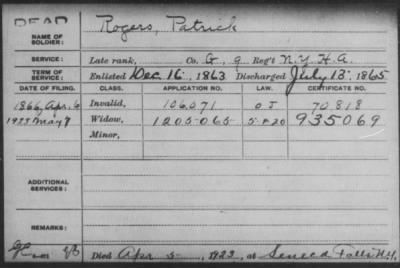 DEAD
NAME OF SOLDIER: Rogers, Patrick
SERVICE: Late rank, Co. G, 9 Reg't N.Y. H.A.
TERM OF SERVICE: Enlisted Dec. 16, 1863 Discharged July 13, 1865
DATE OF FILING. CLASS. APPLICATION NO. LAW. CERTIFICATE NO.
1866, Apr. 6 Invalid, 106,071 O J 70,818
1923 May 8 Widow, 1205065 5-1-20 935069
Minor,
ADDITIONAL SERVICES:
REMARKS:
Died Apr 5, 1923, at Seneca Falls N.Y.